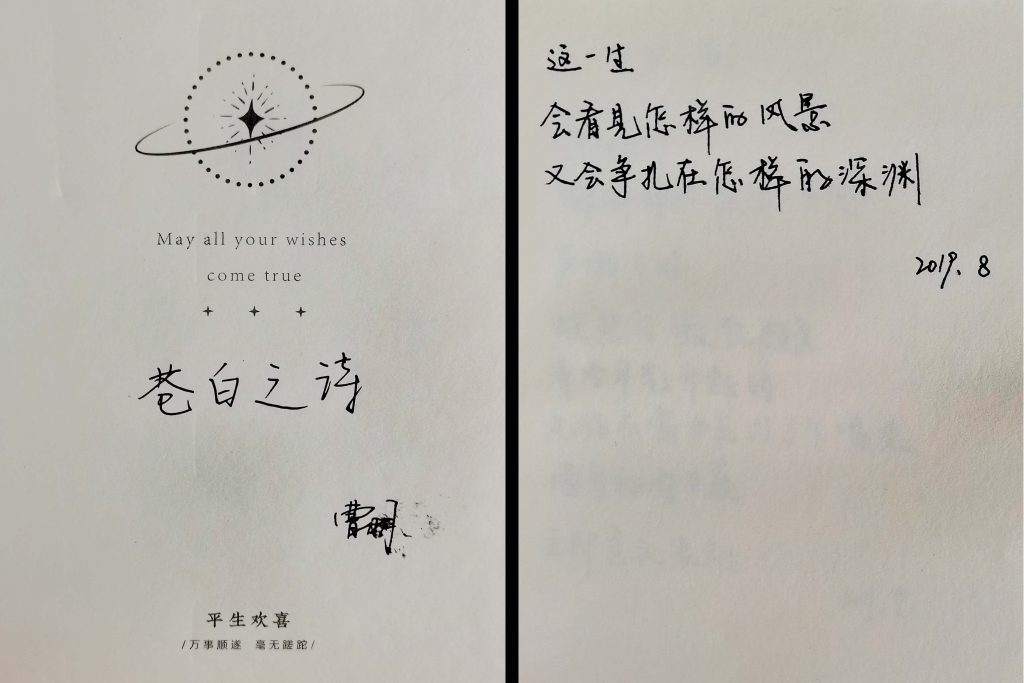 May all your wishes
come true
苍白之诗
平生欢喜
/万事顺遂 毫无蹉跎/
这一生
会看见怎样的风景
又会争扎在怎样的深渊
2019.8